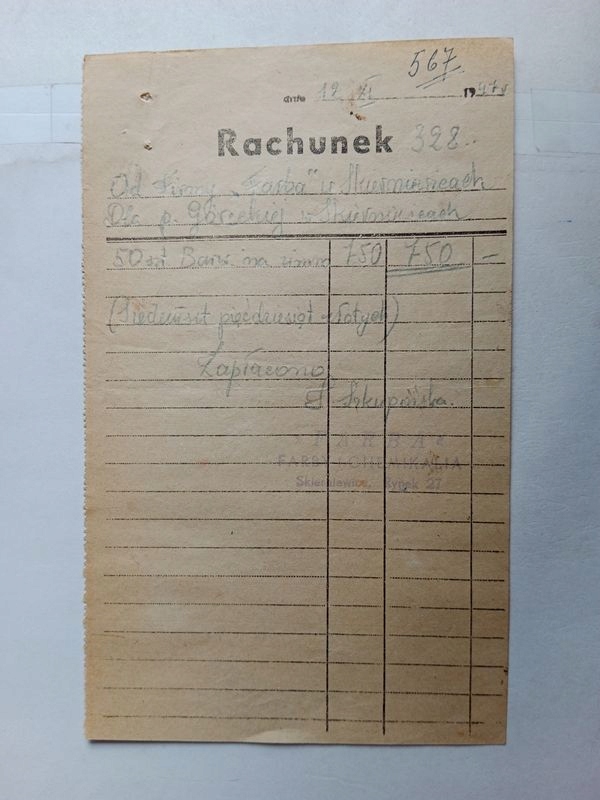 567
dnia 12 XI 1947 r
Rachunek 328
Od Firmy „Farba" w Skierniewicach
Dla p. Góreckiej w Skierniewicach
50 szt Barw. na zimno 750 750 —
(Siedemset pięćdziesiąt złotych)
Zapłacono
Skupińska.
"FARBA"
FARBY I CHEMIKALIA
Skierniewice, Rynek 27